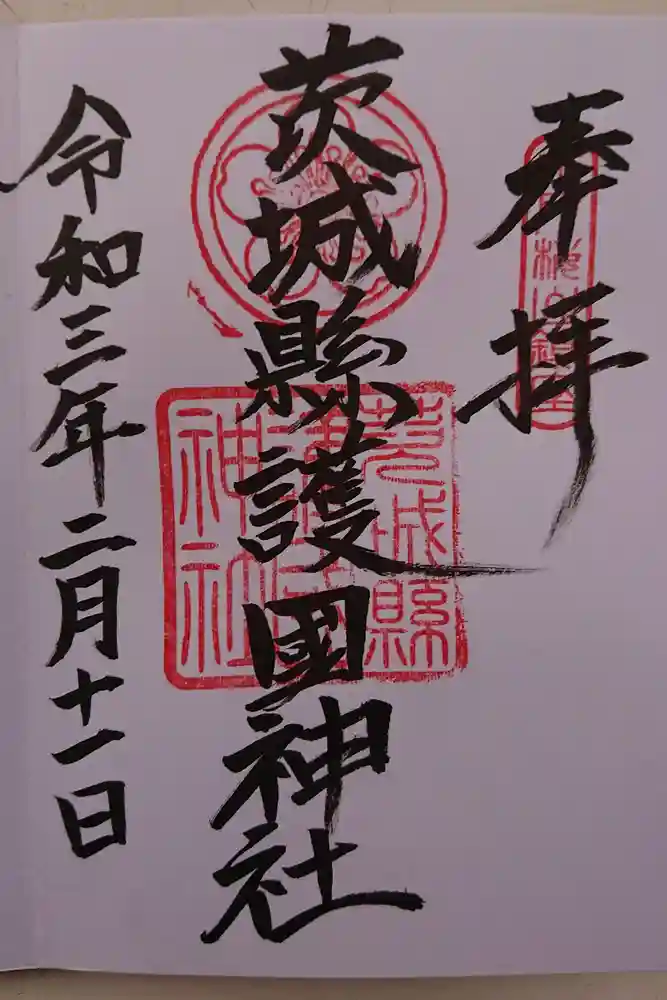 奉拝
茨城縣護國神社
令和三年二月十一日
茨城縣
護國
神社